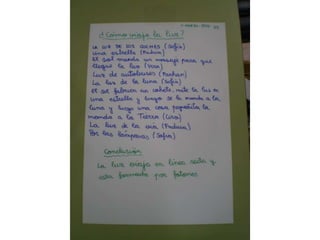 ¿Cómo viaja la luz?
La luz de los coches (Sofía)
Una estrella (Nadian)
El sol manda un mensaje para que
llegue la luz (Vera)
Luz de autobuses (Nadian)
La luz de la luna (Sofía)
El sol fabrica un cohete, mete la luz en
una estrella y luego se la manda a la
luna y luego una cosa pequeñita la
manda a la Tierra (Ciro)
La luz de la
Por las lámparas (Sofía)
Conclusión
La luz viaja en línea recta y
está formada por fotones